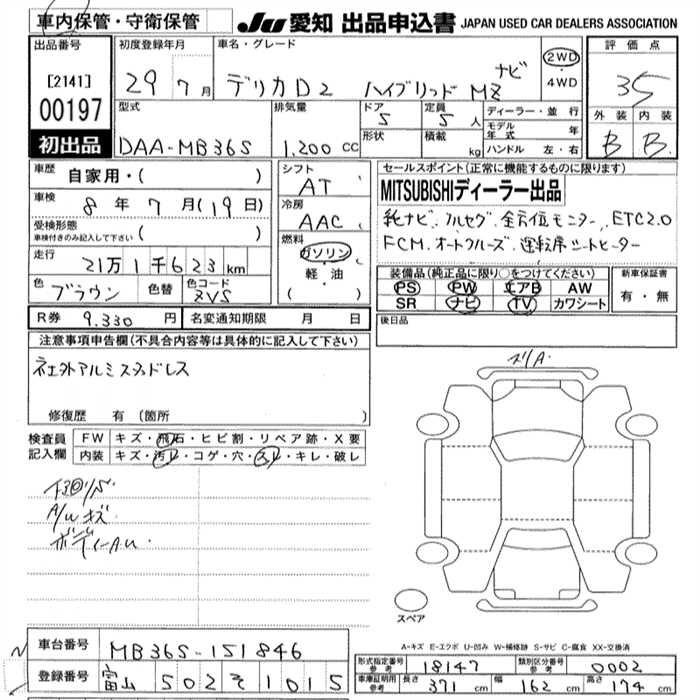 車内保管・守衛保管
JU 愛知 出品申込書 JAPAN USED CAR DEALERS ASSOCIATION
出品番号
[2141]
00197
初出品
初度登録年月
29年 7月
車名・グレード
デリカD2 ハイブリッド MZ
ナビ
2WD・4WD
評価点
3.5
外装 内装
B B
型式
DAA-MB36S
排気量
1,200 CC
ドア
5
形状
定員
5人
積載
kg
ディーラー・並行
モデル年式 年
ハンドル 左・右
車歴
自家用・( )
車検
8年 7月(19日)
受検形態
車検付きのみ記入して下さい ( )
走行
21万1千623km
色
ブラウン
色替
色コード
ZVS
シフト
AT
冷房
AAC
燃料
ガソリン
軽・油
( )
セールスポイント(正常に機能するものに限ります)
MITSUBISHIディーラー出品
純ナビ、フルセグ、全方位モニター、ETC2.0
FCM、オートクルーズ、運転席シートヒーター
装備品(純正品に限り○をつけてください)
PS PW エアB AW
SR ナビ TV カワシート
新車保証書
有・無
後日品
R券 9,330円
名変通知期限 月 日
注意事項申告欄(不具合内容等は具体的に記入して下さい)
ネ士外アルミスタッドレス
修復歴 有(箇所 )
検査員記入欄
FW キズ・飛石・ヒビ割・リペア跡・X要
内装 キズ・汚レ・コゲ・穴・スレ・キレ・破レ
A/Uキズ
ボディーAU
スペア
A-キズ E-エクボ U-凹み W-補修跡 S-サビ C-腐食 XX-交換済
車台番号
MB36S-151846
登録番号
富山 502 そ 1015
型式指定番号
参考
18147
類別区分番号
参考
0002
車庫証明用
参考
長さ 371cm 幅 162cm 高さ 174cm